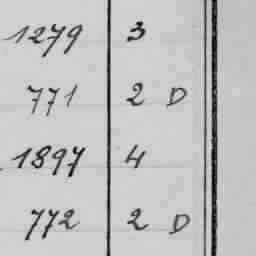 1279 3
771 2 D
1897 4
772 2 D